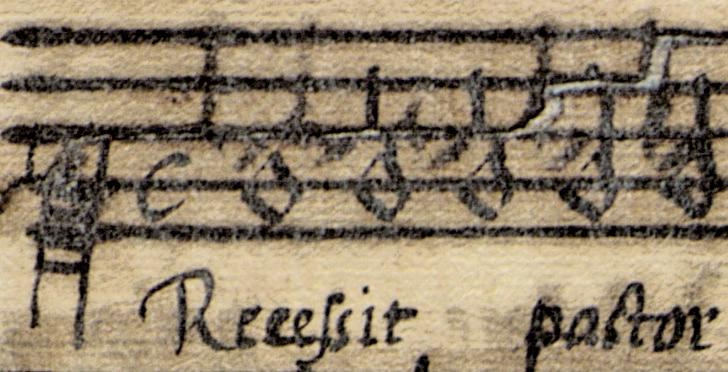 Recessit pastor